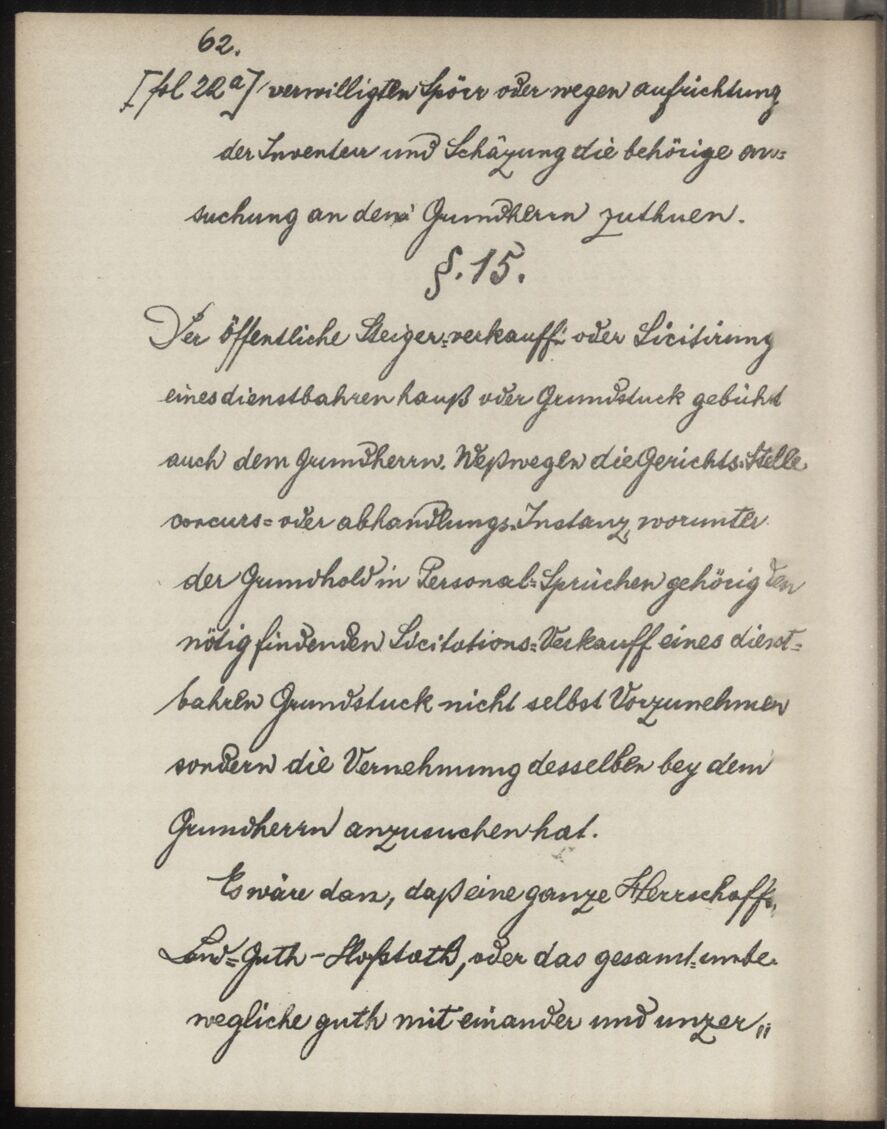 62.
[fol 22a] verwilligten Spörr oder wegen aufrichtung
der Inventur und Schäzung die behörige an=
suchung an den Grundherrn zuthuen.
§. 15.
Der öffentliche Steiger=verkauff: oder Licitirung
eines dienstbahren hauß oder Grundstuck gebührt
auch dem grundherrn. Weßwegen die Gerichts=Stelle
concurs= oder abhandlungs=Instanz, worunter
der Grundhold in Personal=Sprüchen gehörig den
nötig findenden Licitations=Verkauff eines dienst=
bahren Grundstuck nicht selbst Vorzunehmen
sondern die Vernehmung desselben bey dem
Grundherrn anzusuchen hat.
Es wäre dan, daß eine ganze Herrschafft,
Land=Guth - Hofstath, oder das gesamt=unbe=
wegliche guth mit einander und unzer„